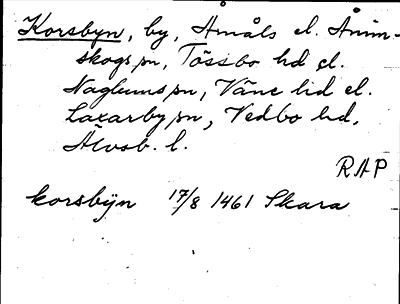 Korsbyn, by, Åmåls el. Ånim-
skogs sn, Tössbo hd el.
Naglums sn, Väne hd el.
Laxarby sn, Vedbo hd,
Älvsb. l.
RAP
korsbÿn 17/8 1461 Skara